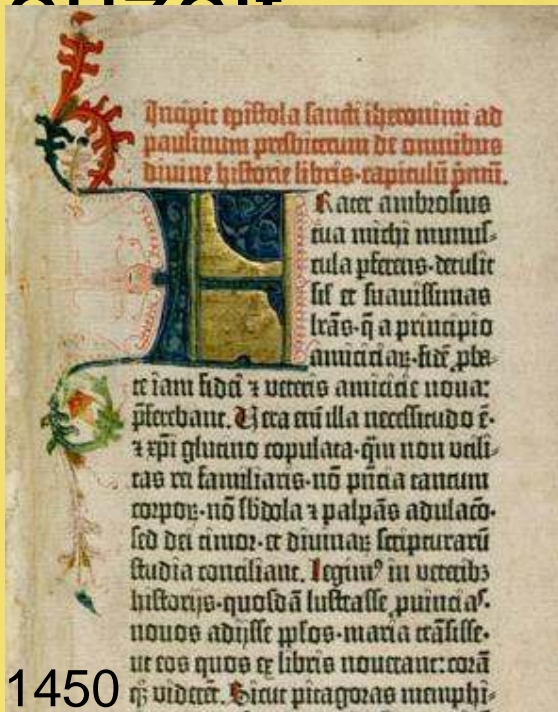 Incipit epistola sancti iheronimi ad
paulinum presbiterum de omnibus
divine historie libris·capitulū pmū.
Frater ambrosius
tua michi munus-
cula pferens·detulit
sil et suavissimas
lrās·q̄ a principio
amiciciaꝝ·fidē pba-
te iam fidei ⁊ veteris amicicie nova:
pferebant. Vera eni illa necessitudo ē·
⁊ xpi glutino copulata·qm non utili-
tas rei familiaris·nō pncia tantum
corpoꝝ·nō sbdola ⁊ palpās adulacō·
sed dei timor·et divinaꝝ scripturarū
studia conciliant. Legimꝰ in veteribꝫ
historijs·quosdā lustrasse pvincias·
novos adijsse pplos·maria trāsisse·
ut eos quos ex libris noverant: corā
qꝫ viderēt. Sicut pitagoras memphi-
1450